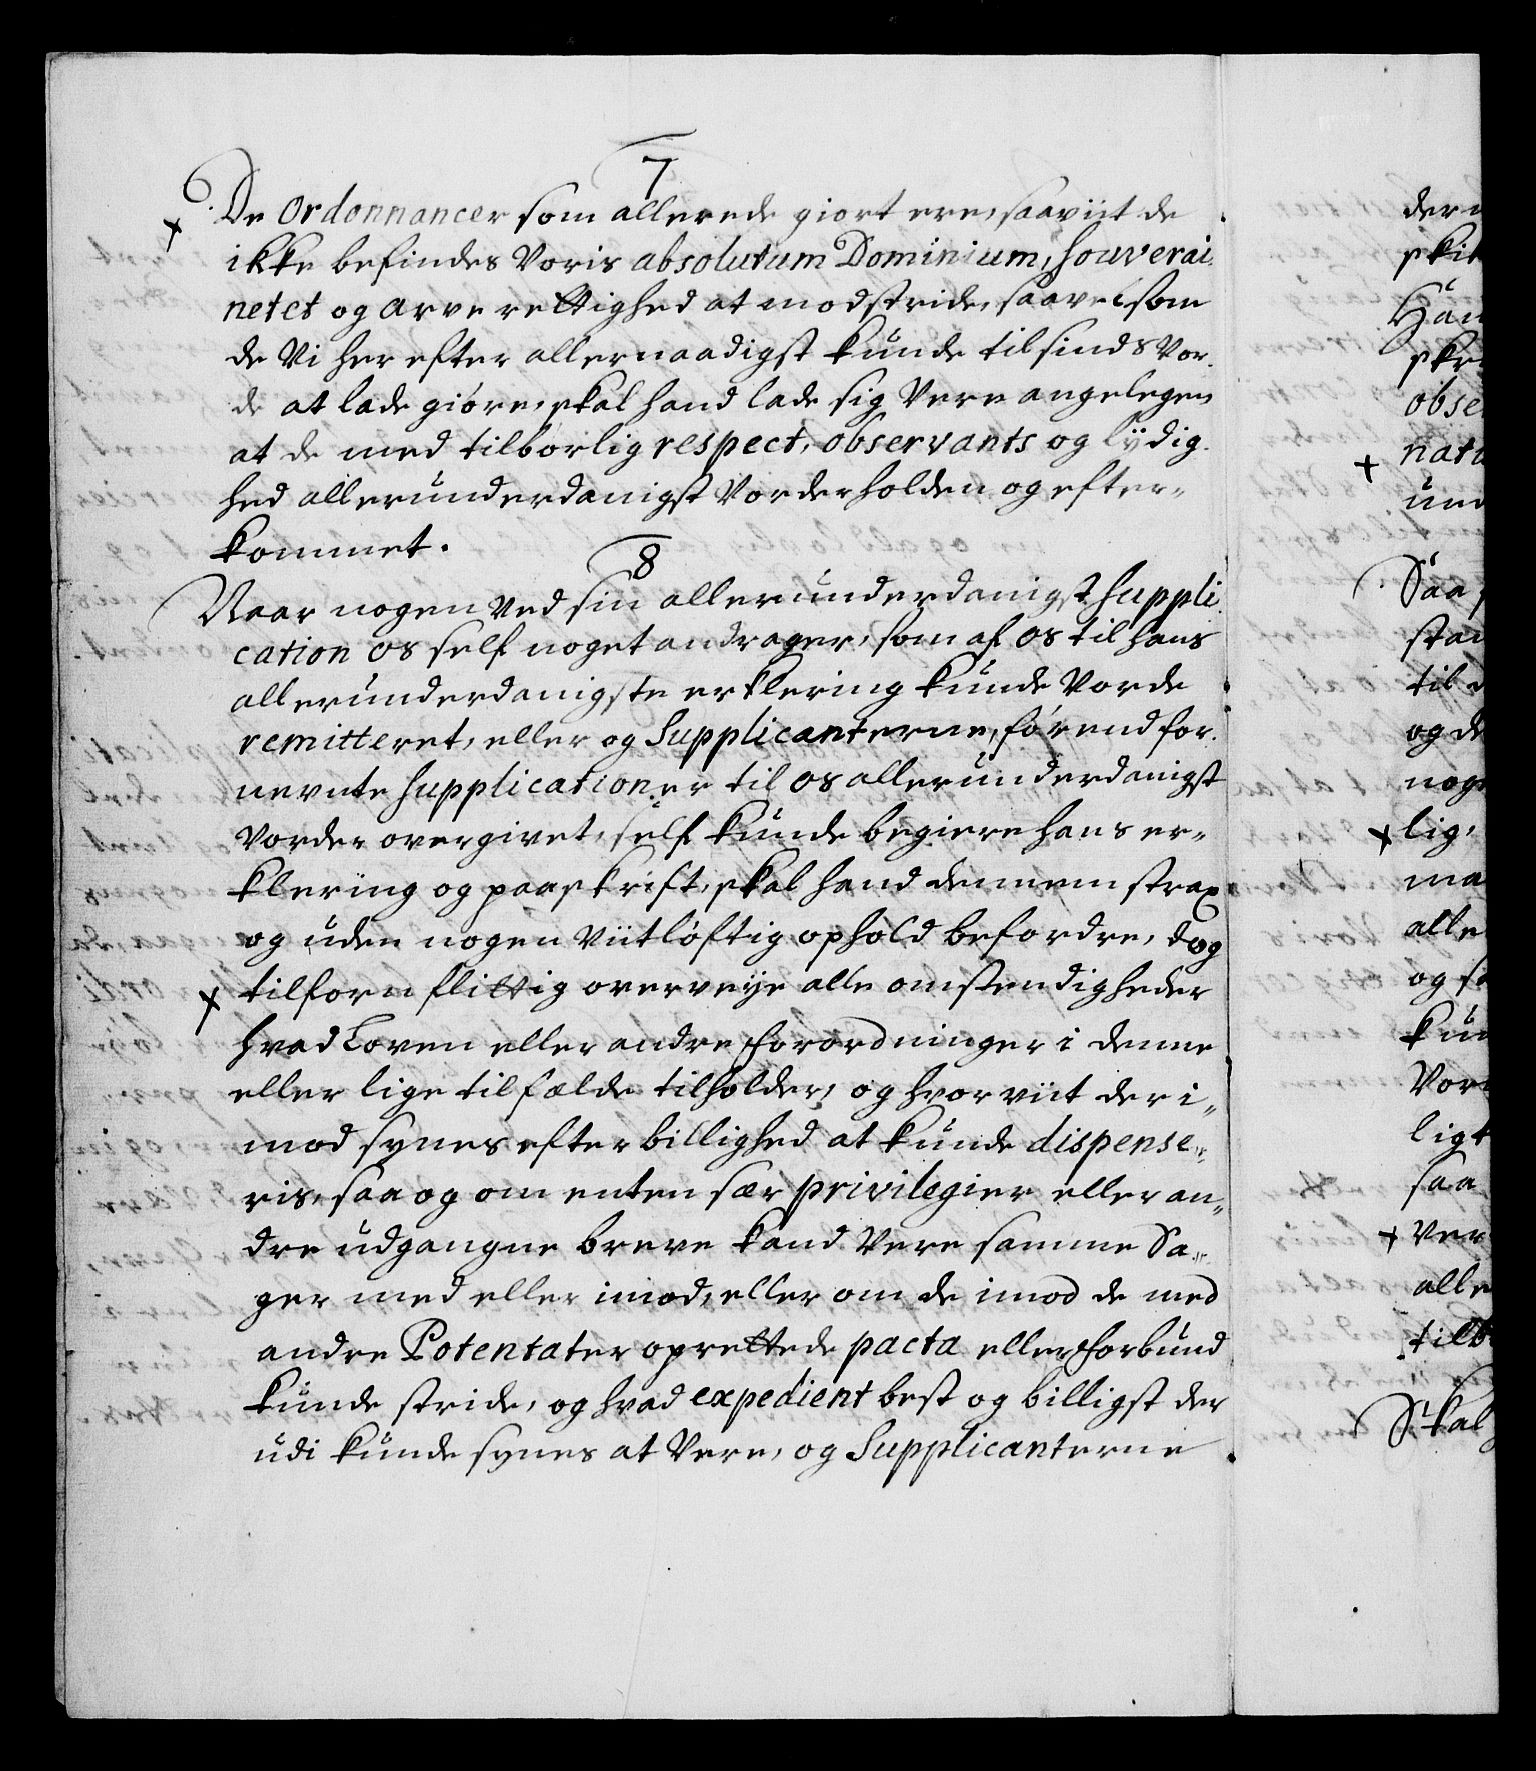 7
De Ordonnancer som allerede giort ere, saaviit de
ikke befindes Voris absolutum Dominium, Souverai
netet og arve rettighed at modstride, saavelsom
de Vi her efter allernaadigst kunde tilsinds Vor
de at lade giøre, skal hand lade sig Vere angelegen,
at de med tilbørlig respect, observants og lÿdig
hed allerunderdanigst Vorder holden og efter-
kommet.
8
Naar nogen Ved sin allerunderdanigst Suppli
cation os self noget andrager, som af os til hans
allerunderdanigste erklering kunde Vorde
remitteret, eller og Supplicanterne, førend for
nevnte Supplicationer til os allerunderdanigst
Vorder overgivet, self kunde begiere hans er-
klering og paaskrift, skal hand dennem strax
og uden nogen Viitløftig ophold befordre, dog
tilforn flittig overveÿe alle omstendigheder
hvad Loven eller andre forordninger i denne
eller lige tilfælde tilholder, og hvorviit der i-
mod synes efter billighed at kunde dispense-
ris, saa og om enten sær privilegier eller an-
dre udgangne breve kand Vere samme Sa-
ger med eller imod, eller om de imod de med
andre Potentater oprettede pacta eller forbund
kunde stride, og hvad expedient best og billigst der
udi kunde synes at Vere, og Supplicanterne
der
skik
Han
skr
obse
natu
und
Saa
stan
til
og de
noge
lig,
ma
alle
og s
kun
Vor
ligt
saa
Ver
alle
tilb
Skal